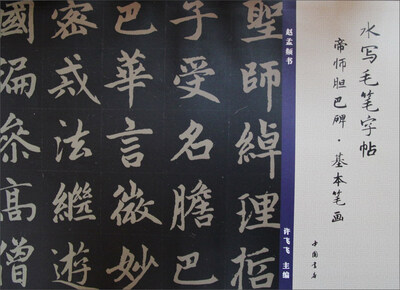 水写毛笔字帖
帝师胆巴碑·基本笔画
中国书店
赵孟頫书
许飞飞 主编
聖師綽理哲
子受名膽巴
巴華言微妙
密戒法繼遊
國徧參高僧